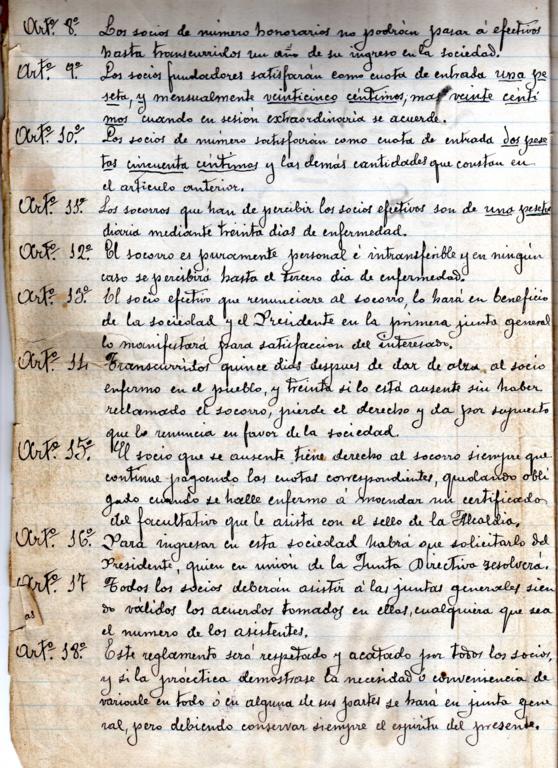 Artº 8º Los socios de número honorarios no podrán pasar á efectivos
hasta transcurridos un año de su ingreso en la sociedad.
Artº 9º Los socios fundadores satisfarán como cuota de entrada una pe
seta, y mensualmente veinticinco céntimos, mas veinte centi
mos cuando en sesión extraordinaria se acuerde.
Artº 10º Los socios de número satisfarán como cuota de entrada dos pese
tas cincuenta centimos y las demás cantidades que constan en
el articulo anterior.
Artº 11º Los socorros que han de percibir los socios efectivos son de una peseta
diaria mediante treinta dias de enfermedad.
Artº 12º El socorro es puramente personal é intransferible y en ningún
caso se percibirá hasta el tercero dia de enfermedad.
Artº 13º El socio efectivo que renunciare al socorro, lo hará en beneficio
de la sociedad y el Presidente en la primera junta general
lo manifestará para satisfaccion del interesado.
Artº 14 Transcurridos quince dias despues de dar de alza al socio
enfermo en el pueblo, y treinta si lo está ausente sin haber
reclamado el socorro, pierde el derecho y da por supuesto
que lo renuncia en favor de la sociedad.
Artº 15º El socio que se ausente tiene derecho al socorro siempre que
continue pagando las cuotas correspondientes, quedando obli
gado cuando se halle enfermo á mandar un certificado
del facultativo que le asista con el sello de la Alcaldia.
Artº 16º Para ingresar en esta sociedad habrá que solicitarlo del
Presidente, quien en union de la Junta Directiva resolverá.
Artº 17 Todos los socios deberán asistir á las juntas generales sien
do válidos los acuerdos tomados en ellas, cualquiera que sea
as
el numero de los asistentes.
Artº 18º Este reglamento será respetado y acatado por todos los socios,
y si la práctica demostrase la necesidad ó conveniencia de
variarle en todo ó en alguna de sus partes se hará en junta gene
ral, pero debiendo conservar siempre el espiritu del presente.